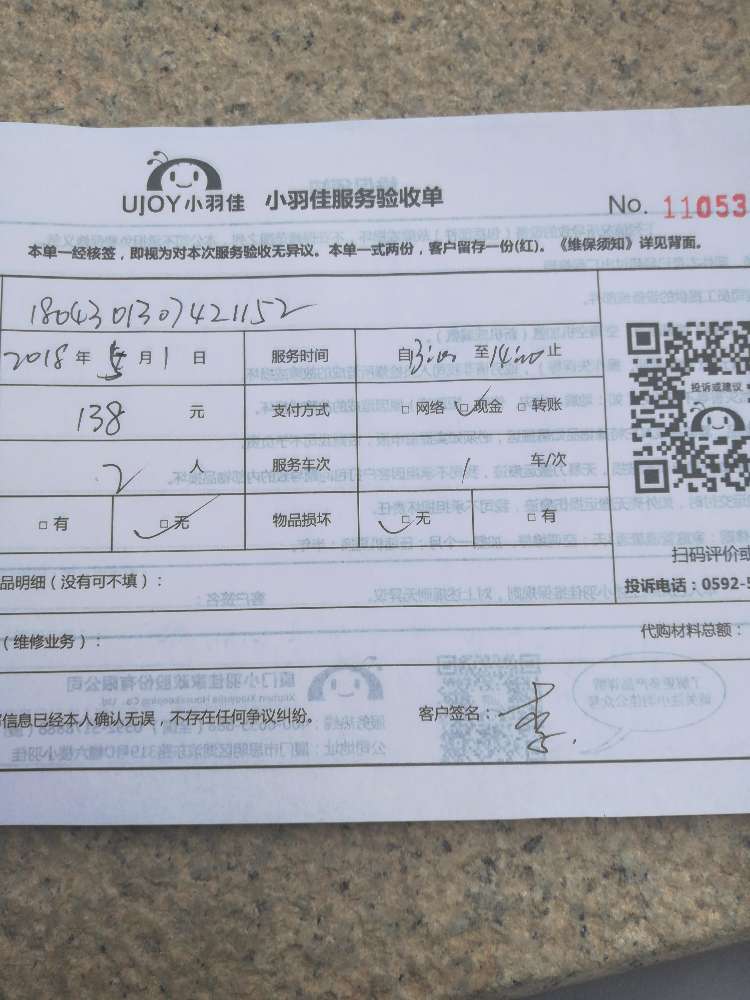 UJOY小羽佳 小羽佳服务验收单 No. 11053
本单一经核签，即视为对本次服务验收无异议。本单一式两份，客户留存一份(红)。《维保须知》详见背面。
1804301307421152
2018年5月1日 服务时间 自13:00至14:00止
投诉或建议
138元 支付方式 □网络 □现金 □转账
2人 服务车次 1车/次
□有 □无 物品损坏 □无 □有
扫码评价或
品明细（没有可不填）：
投诉电话：0592-5
（维修业务）：
代购材料总额：
信息已经本人确认无误，不存在任何争议纠纷。 客户签名：李